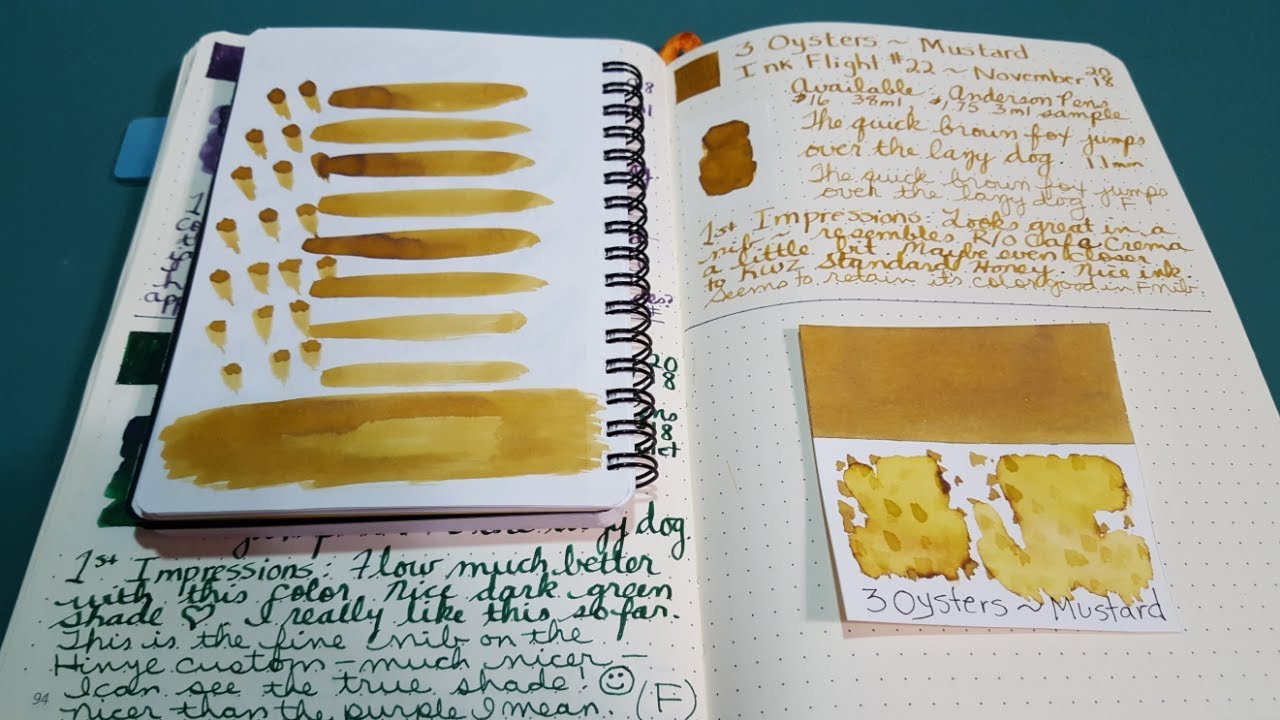 dog.
1st Impressions: Flow much better
with this color. Nice dark green
shade ♡. I really like this so far.
This is the fine nib on the
Hinye custom – much nicer –
I can see the true shade! ☺
nicer than the purple I mean. (F)
94
3 Oysters ~ Mustard
Ink Flight #22 ~ November 2018
Available: Anderson Pens
$16 38ml, $1.75 3ml sample
The quick brown fox jumps
over the lazy dog. 1.1mm
The quick brown fox jumps
over the lazy dog F
1st Impressions: Looks great in a
nib ~ resembles R/O Cafa Crema
a little bit. Maybe even closer
to KWZ Standard Honey. Nice ink.
Seems to retain it's color good in F nib.
3 Oysters ~ Mustard